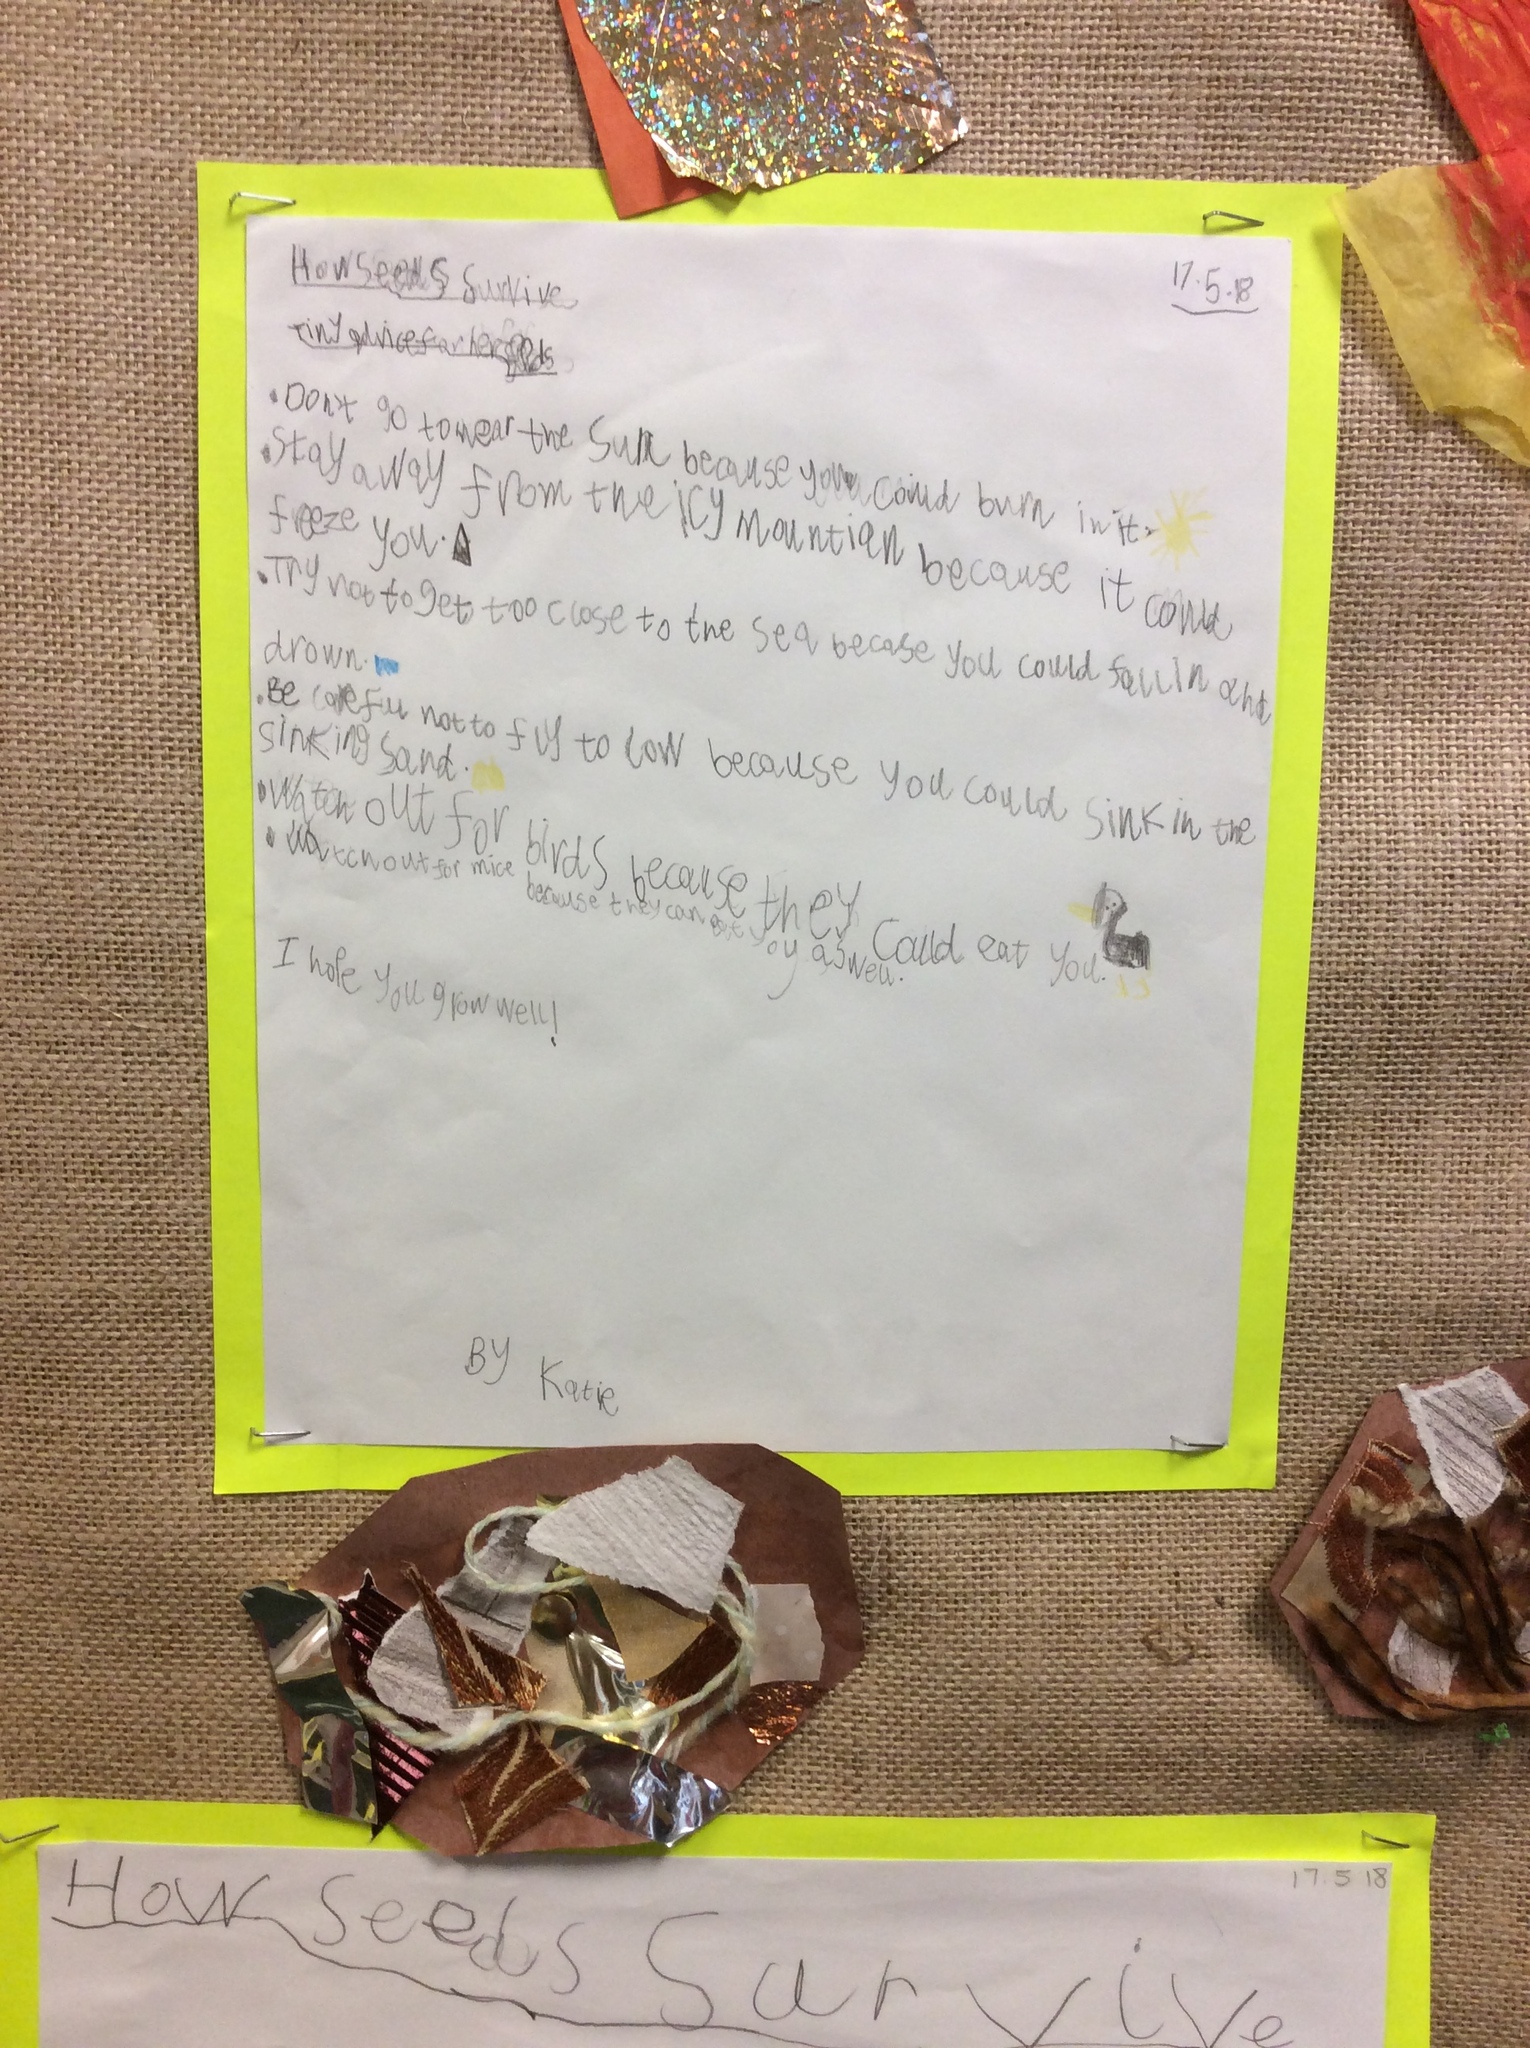 How Seeds Survive
17.5.18
tiny advice for her seeds
• Don't go to near the Sun because you could burn in it.
• Stay away from the icy mountian because it could
freeze you.
• Try not to get too close to the sea becase you could fall in and
drown.
• Be careful not to fly to low because you could sink in the
sinking sand.
• Watch out for birds because they could eat you.
• Watch out for mice because they can eat you as well.
I hope you grow well!
BY Katie
17.5 18
How Seeds Survive